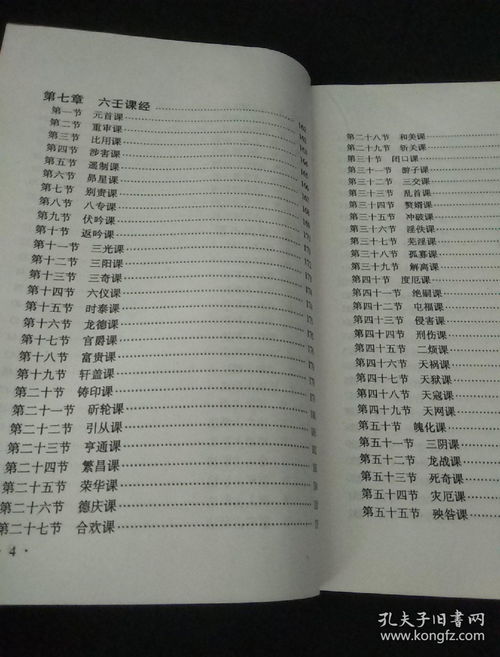 第七章 六壬课经
第一节 元首课
第二节 重审课
第三节 比用课
第四节 涉害课
第五节 遥制课
第六节 昴星课
第七节 别责课
第八节 八专课
第九节 伏吟课
第十节 返吟课
第十一节 三光课
第十二节 三阳课
第十三节 三奇课
第十四节 六仪课
第十五节 时泰课
第十六节 龙德课
第十七节 官爵课
第十八节 富贵课
第十九节 轩盖课
第二十节 铸印课
第二十一节 斫轮课
第二十二节 引从课
第二十三节 亨通课
第二十四节 繁昌课
第二十五节 荣华课
第二十六节 德庆课
第二十七节 合欢课
· 4 ·
第二十八节 和美课
第二十九节 斩关课
第三十节 闭口课
第三十一节 游子课
第三十二节 三交课
第三十三节 乱首课
第三十四节 赘婿课
第三十五节 冲破课
第三十六节 淫泆课
第三十七节 芜淫课
第三十八节 孤寡课
第三十九节 解离课
第四十节 度厄课
第四十一节 绝嗣课
第四十二节 屯福课
第四十三节 侵害课
第四十四节 刑伤课
第四十五节 二烦课
第四十六节 天祸课
第四十七节 天狱课
第四十八节 天寇课
第四十九节 天网课
第五十节 魄化课
第五十一节 三阴课
第五十二节 龙战课
第五十三节 死奇课
第五十四节 灾厄课
第五十五节 殃咎课
孔夫子旧书网
www.kongfz.com